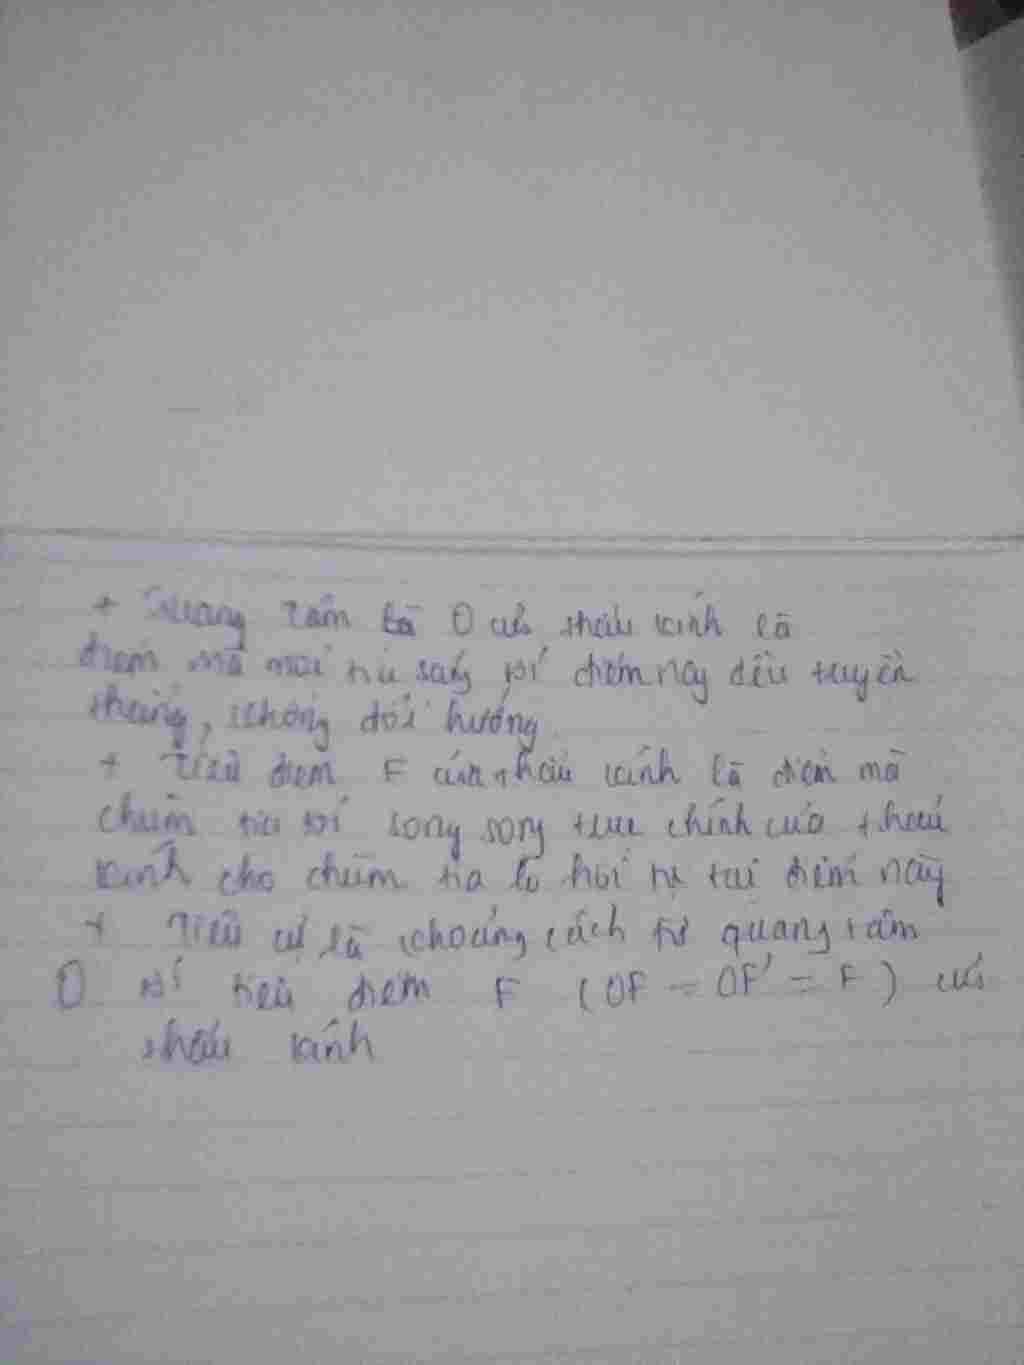 + Quang tâm O của thấu kính là
điểm mà mọi tia sáng tới điểm này đều truyền
thẳng, không đổi hướng.
+ Tiêu điểm F của thấu kính là điểm mà
chùm tia tới song song trục chính của thấu
kính cho chùm tia ló hội tụ tại điểm này
+ Tiêu cự là khoảng cách từ quang tâm
O tới tiêu điểm F (OF = OF' = F) của
thấu kính